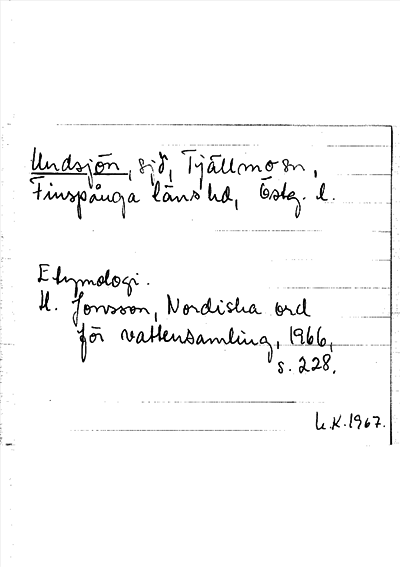 Undsjön, sjö, Tjällmo sn,
Finspånga läns hd, Östg. l.
Etymologi.
H. Jonsson, Nordiska ord
för vattensamling, 1966,
s. 228.
L.K. 1967.